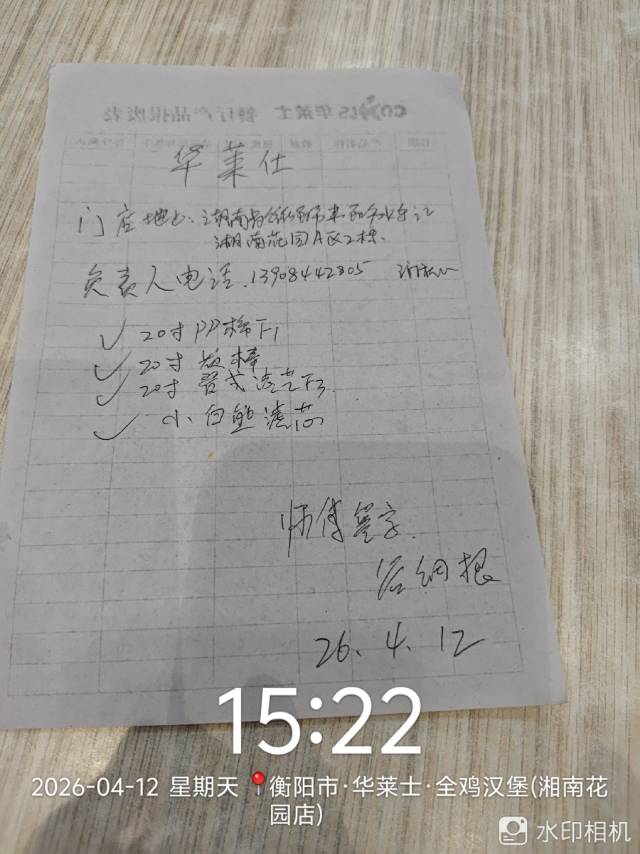 华莱士
华莱仕
门店地址:湖南省衡阳市耒阳
湘南花园A区2栋
负责人电话:13908442805
✓ 20寸PP棉F1
✓ 20寸炭棒
✓ 20寸 滤芯F3
✓ 小白熊滤芯
师傅签字
26.4.12
15:22
2026-04-12 星期天 衡阳市·华莱士·全鸡汉堡(湘南花
园店)
水印相机